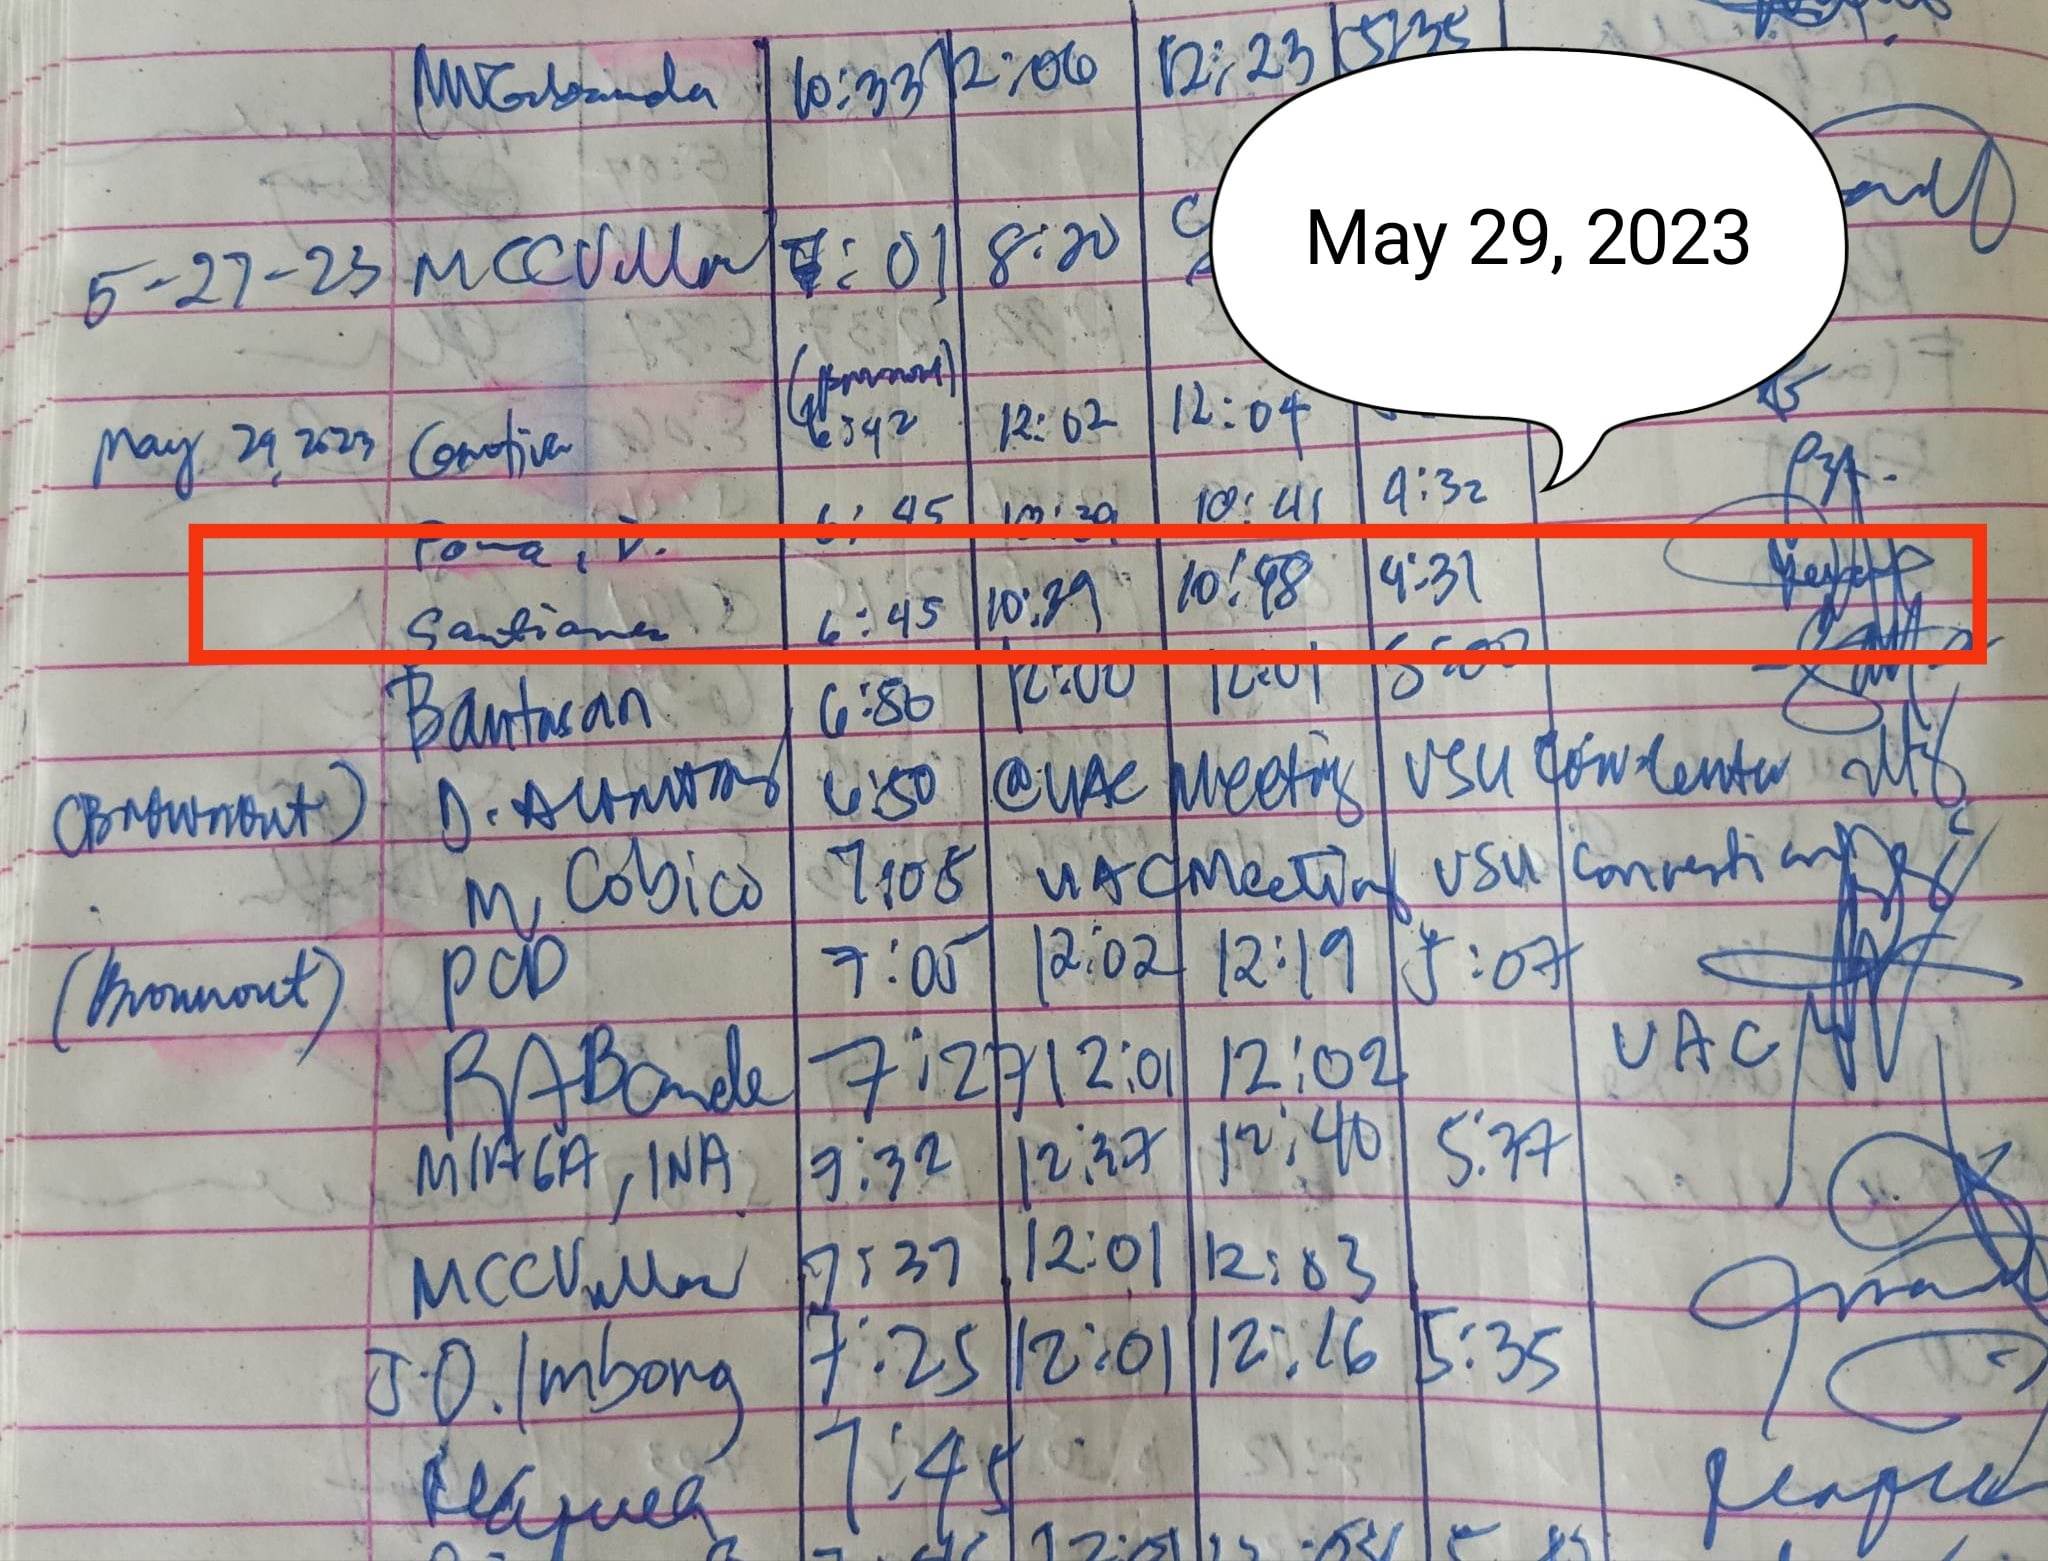 10:33 12:06 12:23 5:35
May 29, 2023
5-27-23 MCCVillar 7:01 8:20
(Brownout)
May 29, 2023 6:42 12:02 12:04
Poma, V. 6:45 10:39 10:41 4:32
Santianez 6:45 10:39 10:48 4:31
Bantasan 6:50 12:00 12:01 5:00
(Brownout) D. 6:50 @UAC Meeting VSU Convention
M Cobico 7:05 UAC Meeting VSU Convention
(Brownout) PCD 7:05 12:02 12:19 5:07
RABande 7:27 12:01 12:02 UAC
MIAGA, INA 7:32 12:37 12:40 5:37
MCCVillar 7:37 12:01 12:03
J.O. Imbong 7:25 12:01 12:16 5:35
7:45